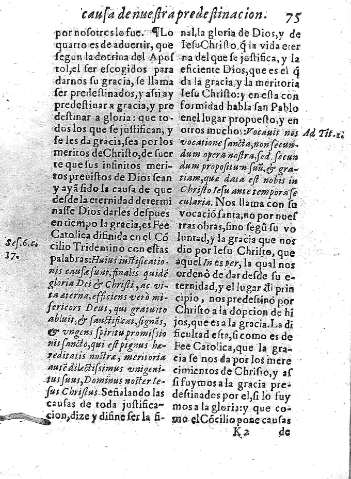 causa de nuestra predestinacion. 75
por nosotros lo fue. ¶ Lo
quarto es de aduertir, que
segun la dotrina del Apos
tol, el ser escogidos para
darnos su gracia, se llama
ser predestinados, y assi ay
predestinar a gracia, y pre
destinar a gloria: que to-
dos los que se justifican, y
se les da gracia, sea por los
meritos de Christo, de suer
te que sus infinitos meri-
tos previstos de Dios sean
y ayã sido la causa de que
desde la eternidad determi
nasse Dios darles despues
en tiempo la gracia, es Fee
Catolica difinida en el Cõ
cilio Tridentino con estas
palabras: Huius iustificatio
nis causæ sunt, finalis quidẽ
gloria Dei & Christi, ac vi-
ta æterna, efficiens verò mi-
sericors Deus, qui gratuito
abluit, & sanctificat, signãs,
& vngens spiritu promissio
nis sancto, qui est pignus hæ-
reditatis nostræ, meritoria
autẽ dilectissimus vnigeni-
tus suus, Dominus noster Ie-
sus Christus. Señalando las
causas de toda justifica-
cion, dize y difine ser la fi-
Ses. 6. c.
17.
nal, la gloria de Dios, y de
Iesu Christo, q̃ la vida eter
na del que se justifica, y la
eficiente Dios, que es el q̃
da la gracia, y la meritoria
Iesu Christo: y en esta con
formidad habla san Pablo
en el lugar propuesto, y en
otros muchos: Vocauit nos
vocatione sancta, non secun-
dum opera nostra, sed secun
dum propositum suũ, & gra-
tiam, quæ data est nobis in
Christo Iesu ante tempora sæ
cularia. Nos llama con su
vocaciõ santa, no por nues
tras obras, sino segũ su vo
luntad, y la gracia que nos
dio por Iesu Christo, que
aquel In es per, la qual nos
ordenò de dar desde su e-
ternidad, y el lugar dl prin
cipio, nos predestinò por
Christo a la adopcion de hi
jos, que es a la gracia. La di
ficultad esta, si como es de
Fee Catolica, que la gra-
cia se nos da por los mere
cimientos de Christo, y as
si fuymos a la gracia pre-
destinados por el, si lo fuy
mos a la gloria: y que co-
mo el Cõcilio pone causas
Ad Tit.
K 2 de